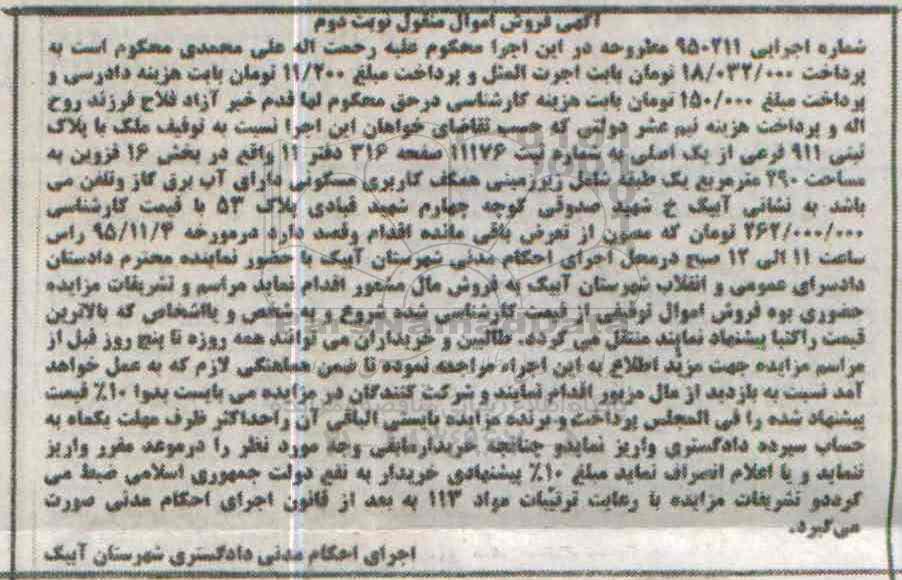 آگهی فروش اموال منقول نوبت دوم
شماره اجرایی ۹۵۰۲۱۱ مطروحه در این اجرا محکوم علیه رحمت اله علی محمدی محکوم است به
پرداخت ۱۸/۰۳۲/۰۰۰ تومان بابت اجرت المثل و پرداخت مبلغ ۱۱/۲۰۰ تومان بابت هزینه دادرسی و
پرداخت مبلغ ۱۵۰/۰۰۰ تومان بابت هزینه کارشناسی درحق محکوم لها قدم خیر آزاد فلاح فرزند روح
اله و پرداخت هزینه نیم عشر دولتی که حسب تقاضای خواهان این اجرا نسبت به توقیف ملک با پلاک
ثبتی ۹۱۱ فرعی از یک اصلی به شماره ثبت ۱۱۱۷۶ صفحه ۳۱۶ دفتر ۱۱ واقع در بخش ۱۶ قزوین به
مساحت ۲۹۰ مترمربع یک طبقه شامل زیرزمینی همکف کاربری مسکونی دارای آب برق گاز وتلفن می
باشد به نشانی آبیک خ شهید صدوقی کوچه چهارم شهید قبادی پلاک ۵۳ با قیمت کارشناسی
۲۶۲/۰۰۰/۰۰۰ تومان که مصون از تعرض باقی مانده اقدام وقصد دارد درمورخه ۹۵/۱۱/۴ راس
ساعت ۱۱ الی ۱۲ صبح درمحل اجرای احکام مدنی شهرستان آبیک با حضور نماینده محترم دادستان
دادسرای عمومی و انقلاب شهرستان آبیک به فروش مال مسعور اقدام نماید مراسم و تشریفات مزایده
حضوری بوه فروش اموال توقیفی از قیمت کارشناسی شده شروع و به شخص و یااشخاص که بالاترین
قیمت راکتبا پیشنهاد نمایند منتقل می گردد. طالبین و خریداران می توانند همه روزه تا پنج روز قبل از
مراسم مزایده جهت مزید اطلاع به این اجراء مراجعه نموده تا ضمن هماهنگی لازم که به عمل خواهد
آمد نسبت به بازدید از مال مزبور اقدام نمایند و شرکت کنندگان در مزایده می بایست بدوا ۱۰٪ قیمت
پیشنهاد شده را فی المجلس پرداخت و برنده مزایده بایستی الباقی آن راحداکثر ظرف مهلت یکماه به
حساب سپرده دادگستری واریز نمایدو چنانچه خریدارمابقی وجه مورد نظر را درموعد مقرر واریز
ننماید و یا اعلام انصراف نماید مبلغ ۱۰٪ پیشنهادی خریدار به نفع دولت جمهوری اسلامی ضبط می
گرددو تشریفات مزایده با رعایت ترتیبات مواد ۱۱۳ به بعد از قانون اجرای احکام مدنی صورت
می‌گیرد.
اجرای احکام مدنی دادگستری شهرستان آبیک